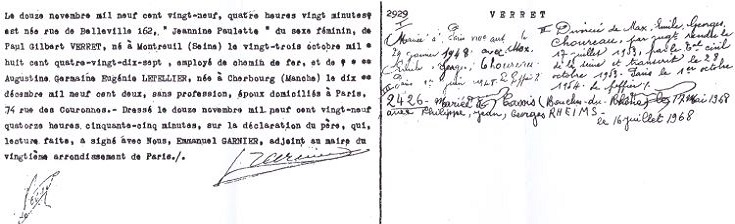 Le douze novembre mil neuf cent vingt-neuf, quatre heures vingt minutes
est née rue de Belleville 162, " Jeannine Paulette " du sexe féminin, de
Paul Gilbert VERRET, né à Montreuil (Seine) le vingt-trois octobre mil
huit cent quatre-vingt-dix-sept, employé de chemin de fer, et de
Augustine Germaine Eugénie LEPELLIER, née à Cherbourg (Manche) le dix
décembre mil neuf cent deux, sans profession, époux domiciliés à Paris,
74 rue des Couronnes.- Dressé le douze novembre mil neuf cent vingt-neuf
quatorze heures, cinquante-cinq minutes, sur la déclaration du père, qui,
lecture faite, a signé avec Nous, Emmanuel GARNIER, adjoint au maire du
vingtième arrondissement de Paris./.
2929 VERRET
I
Mariée à Paris
1948 avec Max,
Emile, Georges, Choureau
II
Divorcée de Max, Emile, Georges,
Choureau, par jugt rendu le
17 juillet 1953, par le trib civil
de la Seine et transcrit le 29
octobre 1953. Paris le 1er octobre
1954. Le Greffier
2426 - Mariée à Cassis (Bouches-du-Rhône) le 17 Mai 1968
avec Philippe, Jean, Georges RHEIMS -
le 16 juillet 1968